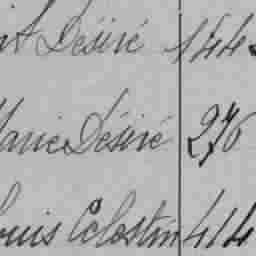 Désiré 144
Marie Désiré 276
Louis Célestin 414